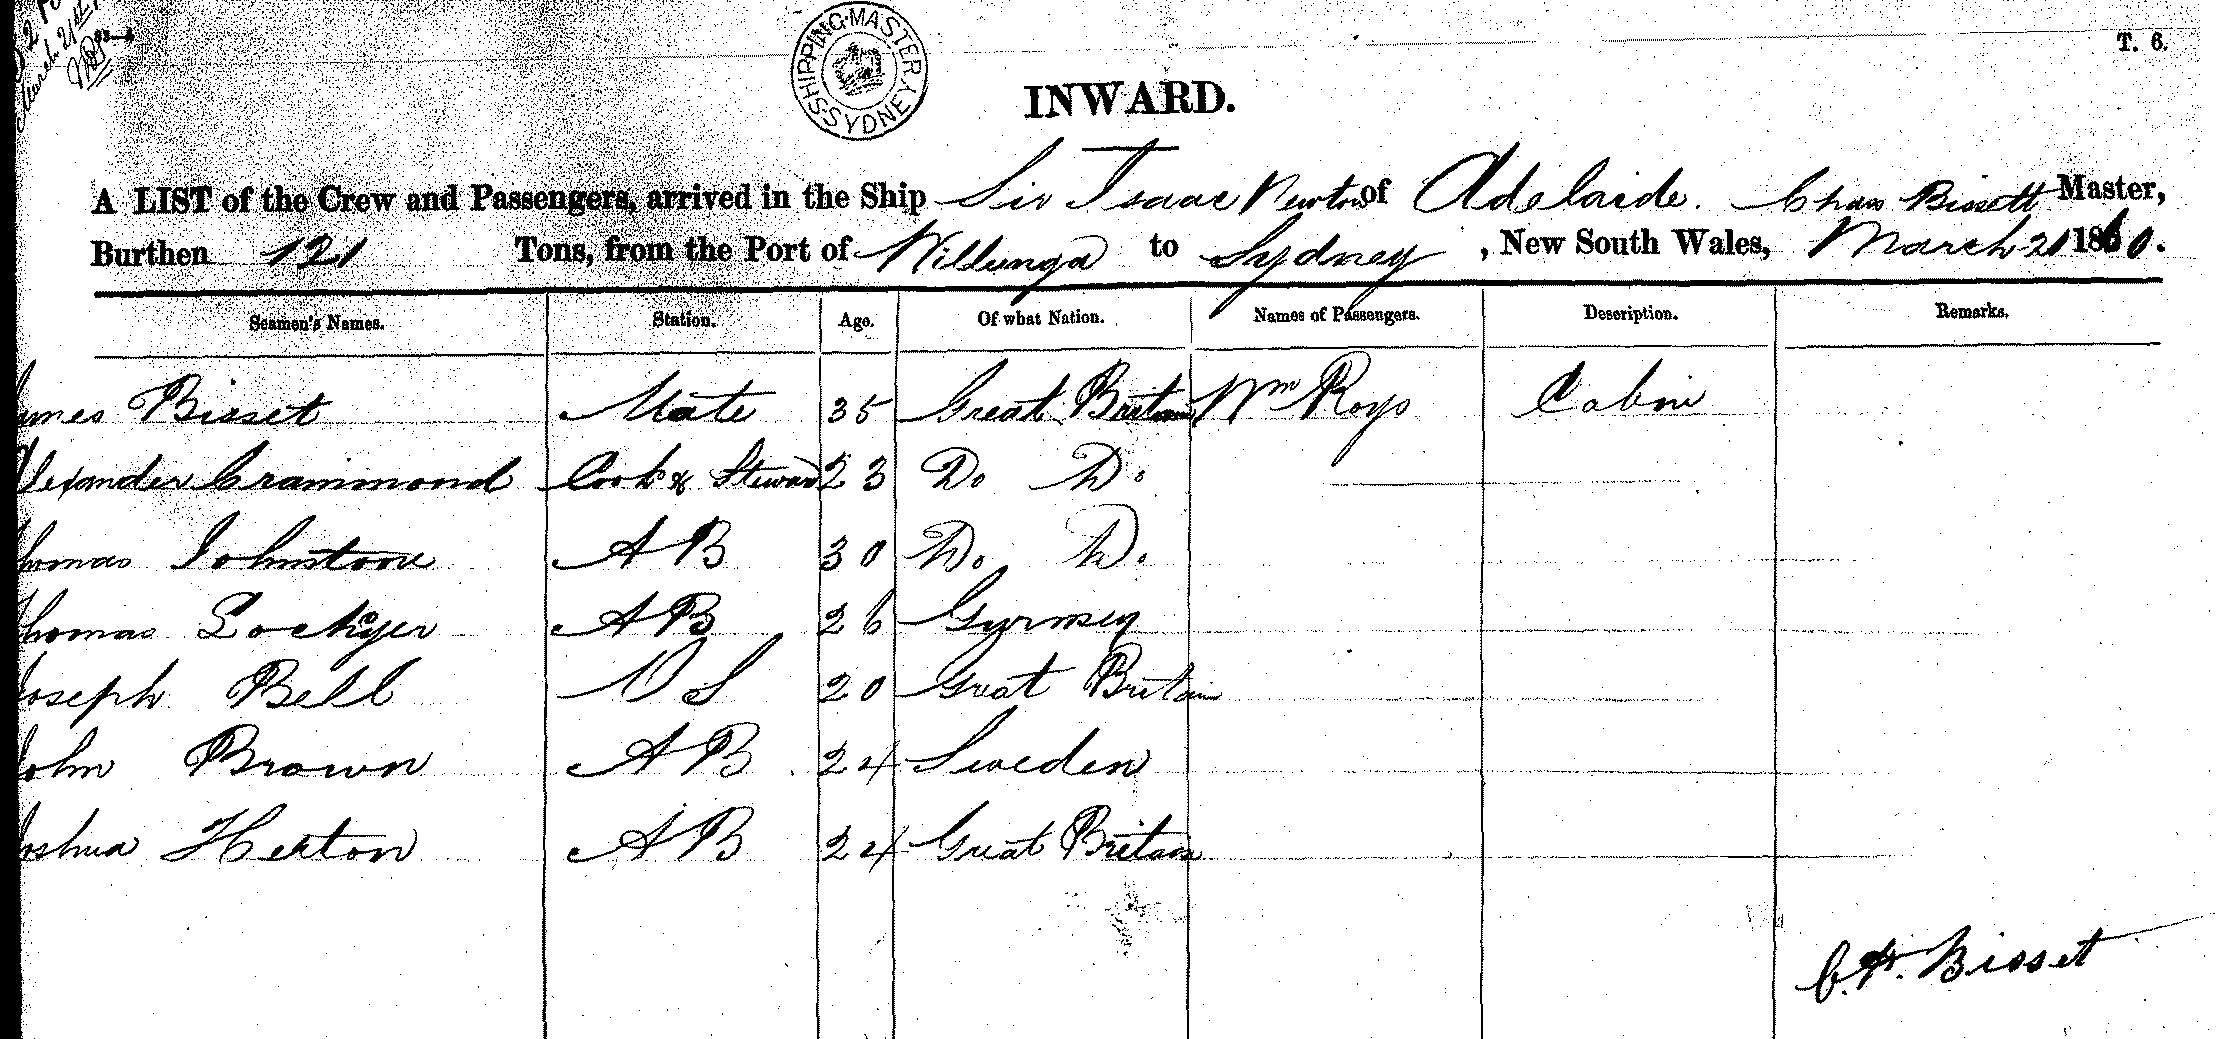 March 21st
SHIPPING MASTER SYDNEY
T. 6.
INWARD.
A LIST of the Crew and Passengers, arrived in the Ship Sir Isaac Newton of Adelaide. Chas Bissett Master,
Burthen 121 Tons, from the Port of Willunga to Sydney, New South Wales, March 21 1860.
Seamen's Names. Station. Age. Of what Nation. Names of Passengers. Description. Remarks.
ames Bisset Mate 35 Great Britain Wm Roys Cabin
Alexander Crammond Cook & Steward 23 Do. Do.
homas Johnstone A B 30 Do. Do.
homas Lockyer A B 26 Gurnsey
Joseph Bell O S 20 Great Britain
John Brown A B 24 Sweden
oshua Hexton A B 24 Great Britain
C. H. Bisset